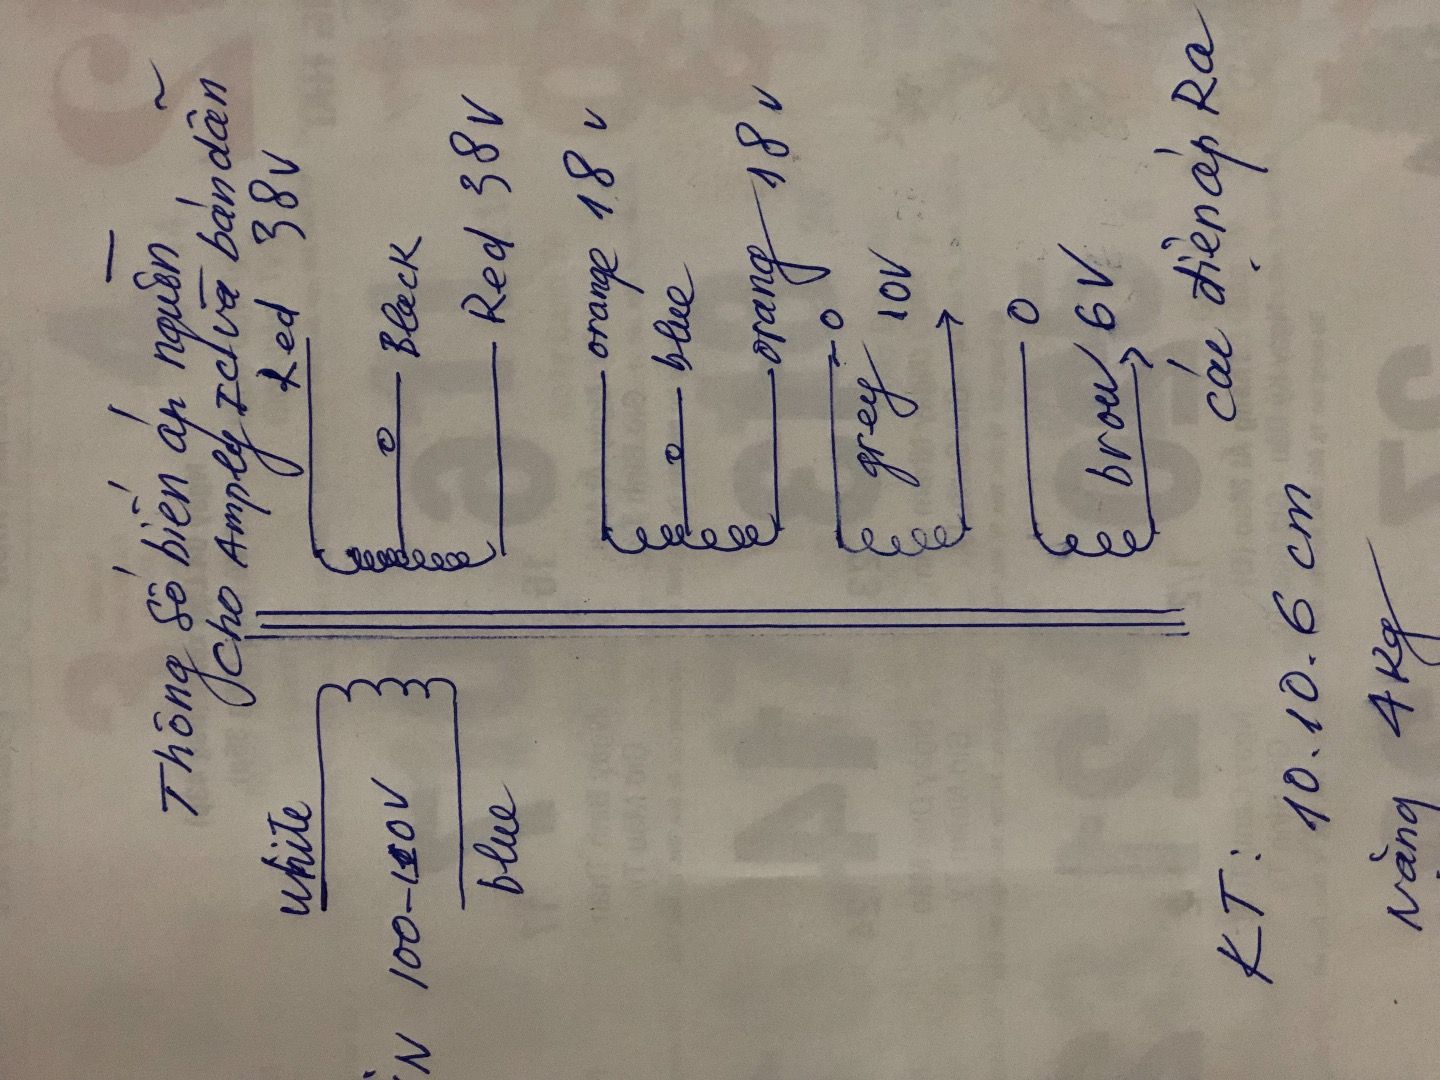 Thông Số biến áp nguồn
Cho Amply IC và bán dẫn
White
100-110V
blue
Red 38V
0 Black
Red 38V
orange 18 v
0 blue
orang 18 v
0
grey 10V
0
brow 6V
các điện áp Ra
KT: 10.10.6 cm
Nặng 4Kg